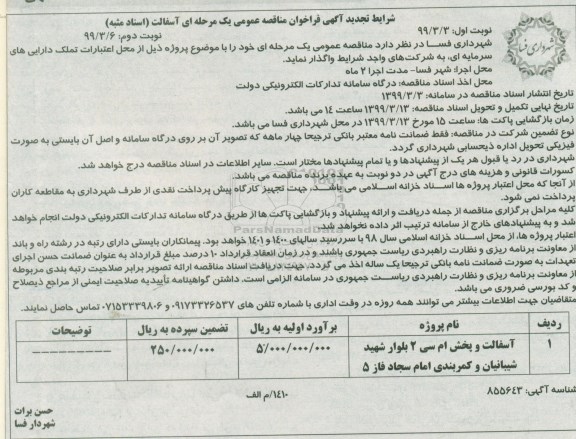 شرایط تجدید آگهی فراخوان مناقصه عمومی یک مرحله ای آسفالت (اسناد مثبه)
نوبت اول: ۹۹/۳/۳
نوبت دوم: ۹۹/۳/۶
شهرداری فسا
شهرداری فسا در نظر دارد مناقصه عمومی یک مرحله ای خود را با موضوع پروژه ذیل از محل اعتبارات تملک دارایی های
سرمایه ای، به شرکت‌های واجد شرایط واگذار نماید.
محل اجرا: شهر فسا- مدت اجرا ۲ ماه
محل اخذ اسناد مناقصه: درگاه سامانه تدارکات الکترونیکی دولت
تاریخ انتشار اسناد مناقصه در سامانه: ۱۳۹۹/۳/۳
تاریخ نهایی تکمیل و تحویل اسناد مناقصه: ۱۳۹۹/۳/۱۳ ساعت ۱۴ می باشد.
زمان بازگشایی پاکت ها: ساعت ۱۵ مورخ ۱۳۹۹/۳/۱۳ در محل شهرداری فسا می باشد.
نوع تضمین شرکت در مناقصه: فقط ضمانت نامه معتبر بانکی ترجیحا چهار ماهه که تصویر آن بر روی درگاه سامانه و اصل آن بایستی به صورت
فیزیکی تحویل اداره ذیحسابی شهرداری گردد.
شهرداری در رد یا قبول هر یک از پیشنهادها و یا تمام پیشنهادها مختار است. سایر اطلاعات در اسناد مناقصه درج خواهد شد.
کسورات قانونی و هزینه های درج آگهی در دو نوبت به عهده برنده مناقصه می باشد.
از آنجا که محل اعتبار پروژه ها اسناد خزانه اسلامی می باشد، جهت تجهیز کارگاه پیش پرداخت نقدی از طرف شهرداری به مقاطعه کاران
پرداخت نمی شود.
کلیه مراحل برگزاری مناقصه از جمله دریافت و ارائه پیشنهاد و بازگشایی پاکت ها از طریق درگاه سامانه تدارکات الکترونیکی دولت انجام خواهد
شد و به پیشنهادهای خارج از سامانه ترتیب اثر داده نخواهد شد.
اعتبار پروژه ها، از محل اسناد خزانه اسلامی سال ۹۸ با سررسید سالهای ۱۴۰۰ و ۱۴۰۱ خواهد بود. پیمانکاران بایستی دارای رتبه در رشته راه و باند
از معاونت برنامه ریزی و نظارت راهبردی ریاست جمهوری باشند و در زمان انعقاد قرارداد ۱۰ درصد مبلغ قرارداد به عنوان ضمانت حسن اجرای
تعهدات به صورت ضمانت نامه بانکی ترجیحا یک ساله اخذ می گردد. جهت دریافت اسناد مناقصه ارائه تصویر برابر صلاحیت رتبه بندی مربوطه
از معاونت برنامه ریزی و نظارت راهبردی ریاست جمهوری در سامانه الزامی است. داشتن گواهینامه تأییدیه صلاحیت ایمنی از مراجع ذیصلاح
و کد بورسی ضروری می باشد.
متقاضیان جهت اطلاعات بیشتر می توانند همه روزه در وقت اداری با شماره تلفن های ۰۹۱۷۳۳۲۶۵۳۷ و ۰۷۱۵۳۳۳۹۸۰۶ تماس حاصل نمایند.
ردیف نام پروژه برآورد اولیه به ریال تضمین سپرده به ریال توضیحات
۱ آسفالت و پخش ام سی ۲ بلوار شهید شیبانیان و کمربندی امام سجاد فاز ۵ ۵/۰۰۰/۰۰۰/۰۰۰ ۲۵۰/۰۰۰/۰۰۰ ----------
شناسه آگهی: ۸۵۵۶۴۳
۱۴۱۰/م الف
حسن برات
شهردار فسا
ParsNamadData